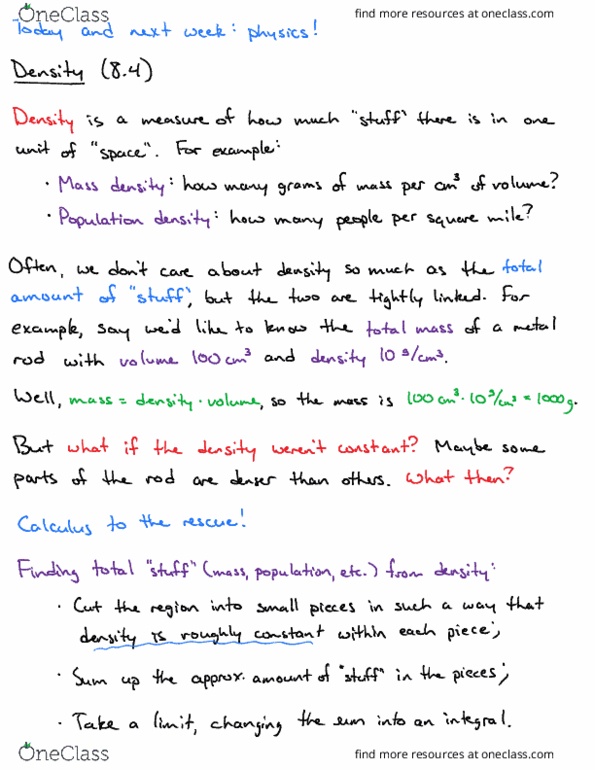 OneClass find more resources at oneclass.com
Today and next week: physics!
Density (8.4)
Density is a measure of how much "stuff" there is in one
unit of "space". For example:
· Mass density: how many grams of mass per cm³ of volume?
· Population density: how many people per square mile?
Often, we don't care about density so much as the total
amount of "stuff", but the two are tightly linked. For
example, say we'd like to know the total mass of a metal
rod with volume 100 cm³ and density 10 g/cm³.
Well, mass = density · volume, so the mass is 100 cm³ · 10 g/cm³ = 1000 g.
But what if the density weren't constant? Maybe some
parts of the rod are denser than others. What then?
Calculus to the rescue!
Finding total "stuff" (mass, population, etc.) from density:
· Cut the region into small pieces in such a way that
density is roughly constant within each piece;
· Sum up the approx. amount of "stuff" in the pieces;
· Take a limit, changing the sum into an integral.
OneClass find more resources at oneclass.com